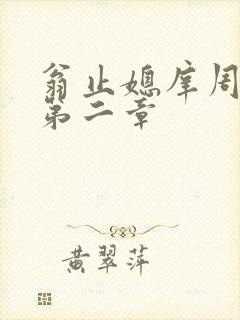 翁止媳庠周
第二章
黄翠萍